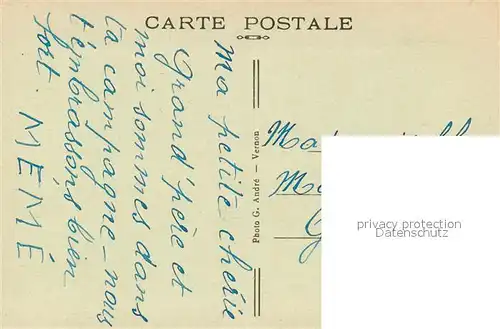 CARTE POSTALE
Ma petite chérie
Grand'père et
moi sommes dans
la campagne - nous
t'embrassons bien
fort. MÉMÉ
Photo G. André — Vernon
privacy protection
Datenschutz